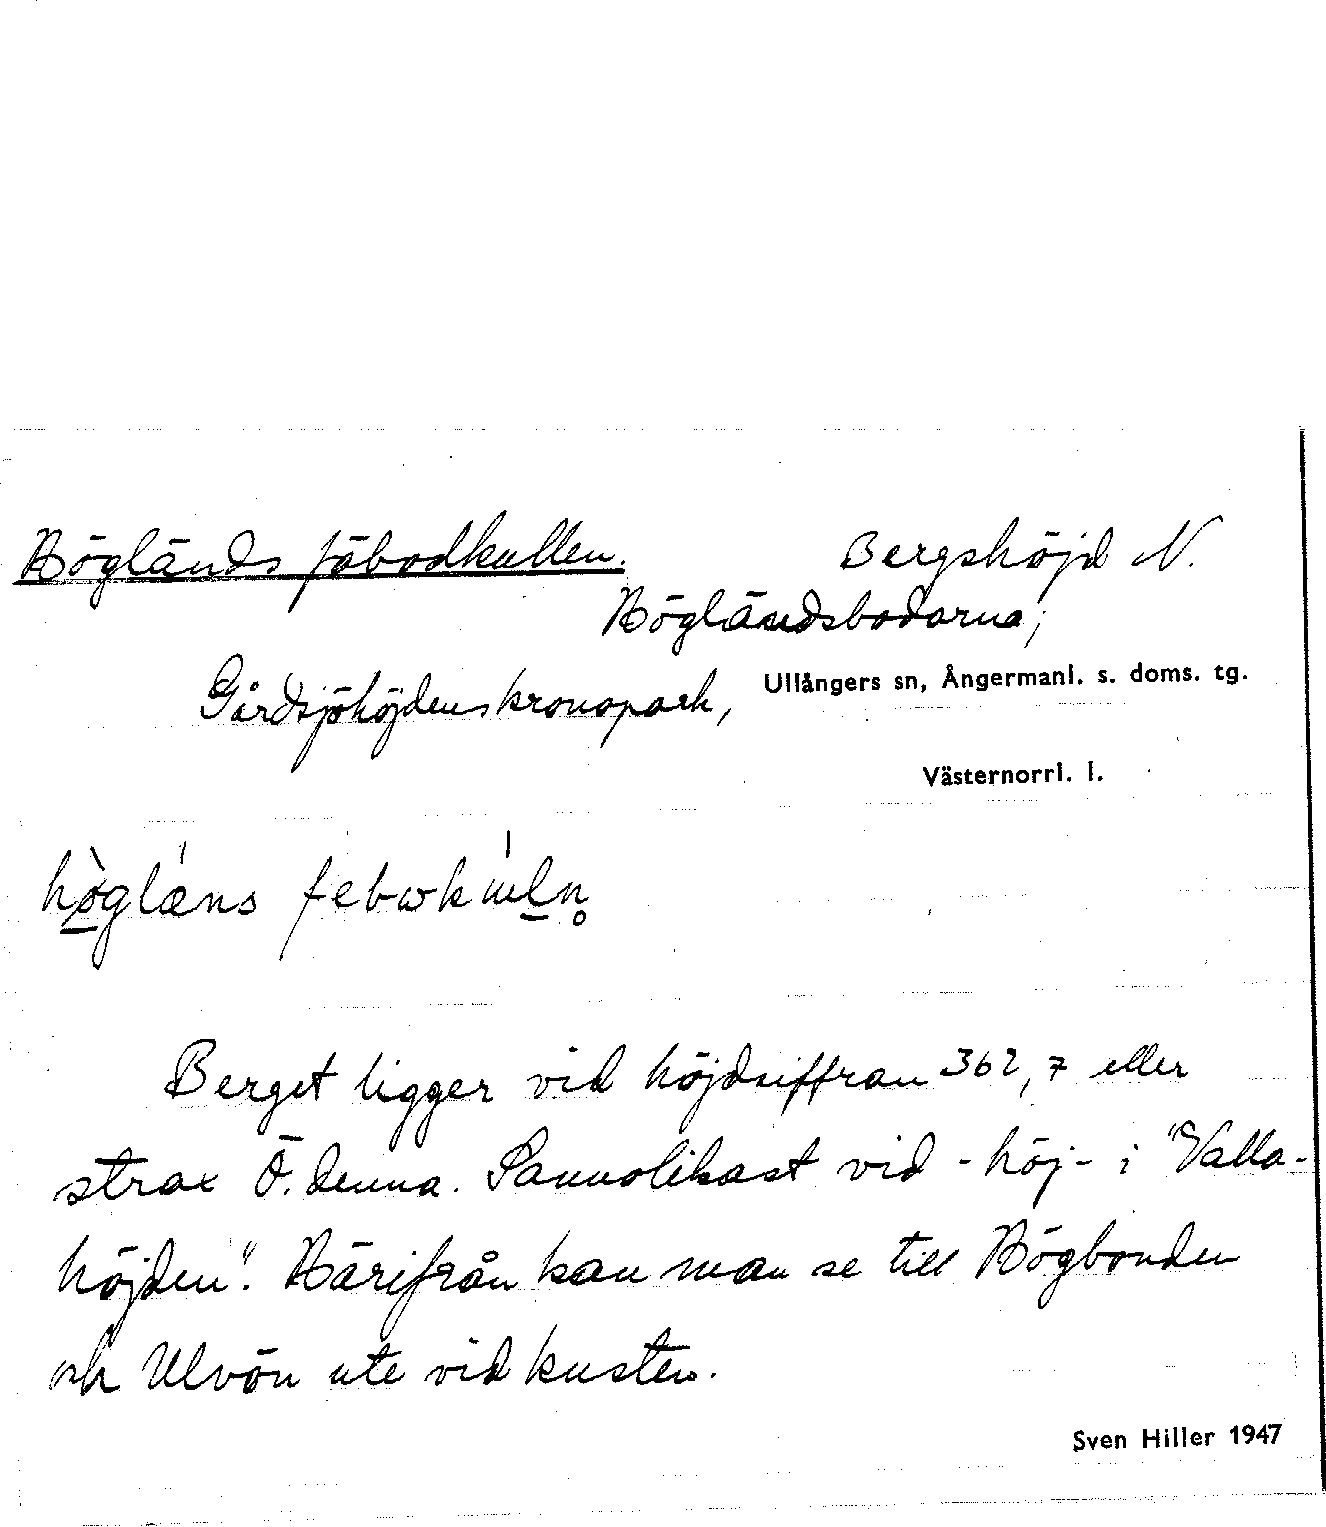 Högländs fäbodkullen. Bergshöjd N.
Högländsbodarna;
Gårdsjöhöjdens kronopark, Ullångers sn, Ångermanl. s. doms. tg.
Västernorrl. l.
Berget ligger vid höjdsiffran 362,7 eller
strax Ö. denna. Sannolikast vid -höj- i "Valla-
höjden". Härifrån kan man se till Högbonden
och Ulvön ute vid kusten.
Sven Hiller 1947